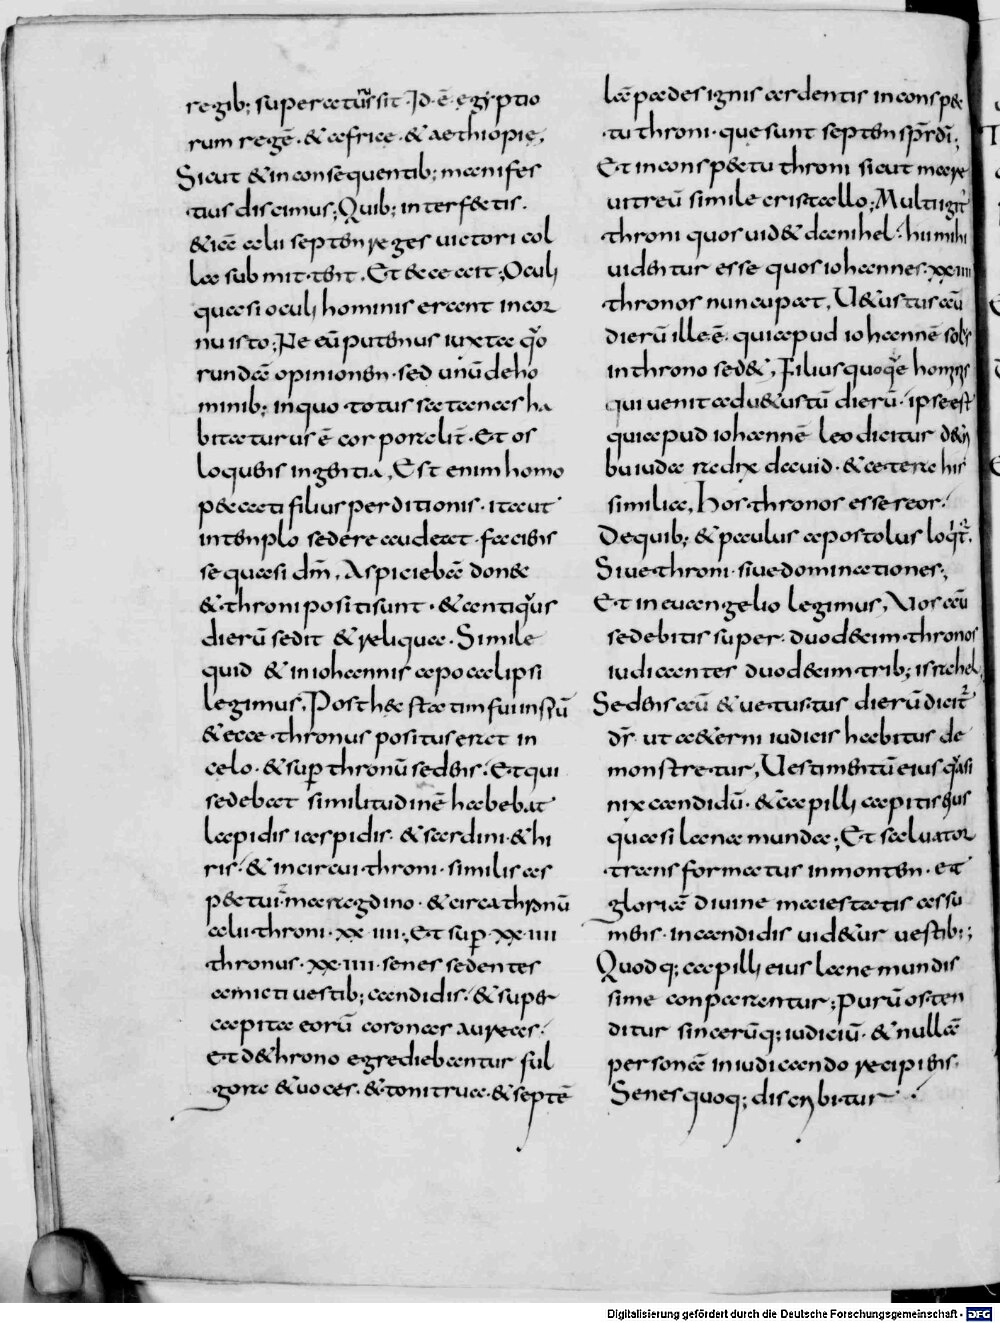 regib; superaturus sit. Id ē ęgyptio
rum regē. & africę. & aethiopię,
Sicut & in consequentib; manifes
tius discimus; Quib; interfectis.
& iā alii septem reges victori col
la submittent. Et ecce ait; Oculi
quasi oculi hominis erant in cor
nu isto; Ne eū putemus iuxta quo
rundā opinionem. sed unū de ho
minib; in quo totus satanas ha
bitaturus ē corporalit. Et os
loquens ingentia, Est enim homo
peccati filius perditionis. ita ut
in templo sedere audeat. faciens
se quasi dm̄, Aspiciebā donec
& throni positi sunt. & antiquus
dierū sedit & reliqua. Simile
quid & in iohannis apocalipsi
legimus, Post hec statim fui in spū
& ecce thronus positus erat in
celo. & sup thronū sedens. Et qui
sedebat similitudinē habebat
lapidis iaspidis. & sardini. & hi
ris. & in circuitu throni. similis as
pectui maragdino. & circa thronū
alii throni. xx iiii. Et sup xx iiii
thronus. xx iiii. senes sedentes
amicti vestib; candidis. & super
capita eorū coronas aureas.
et de throno egrediebantur ful
gora & voces. & tonitrua. & septē
lāpades ignis ardentis in conspec
tu throni. que sunt septem spr̄ dī;
Et in conspectu throni sicut mare
vitreū simile cristallo; Multi igit
throni quos videt danihel. hii mihi
videntur esse quos iohannes. xx iiii
thronos nuncupat, Vetustus aū
dierū ille ē. qui apud iohannē solus
in throno sedet, Filius quoque hominis
qui venit ad vetustū dierū. ipse est
qui apud iohannē leo dicitur de tri
bu iuda radix david. & cetera his
similia, Hos thronos esse reor.
De quib; & paulus apostolus loqt̄.
Sive throni. sive dominationes,
Et in euangelio legimus, Vos aū
sedebitis super duodecim thronos
iudicantes duodecim trib; israhel,
Sedens aū & vetustus dierū dicit
dr̄ ut aeterni iudicis habitus de
monstretur, Vestimentū eius quasi
nix candidū. & capilli capitis eius
quasi lana munda; Et salvator
transformatus in montem. et
gloriā divine maiestatis assu
mens. in candidis videtur vestib;;
Quod q; capilli eius lane mundis
sime conparantur; purū osten
ditur sincerūq; iudiciū. & nullā
personā in iudicando recipiens.
Senes quoq; discribitur.
Digitalisierung gefördert durch die Deutsche Forschungsgemeinschaft - DFG